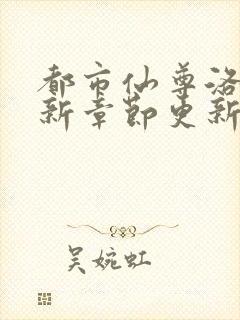 都市仙尊洛
新章节更新
吴婉虹